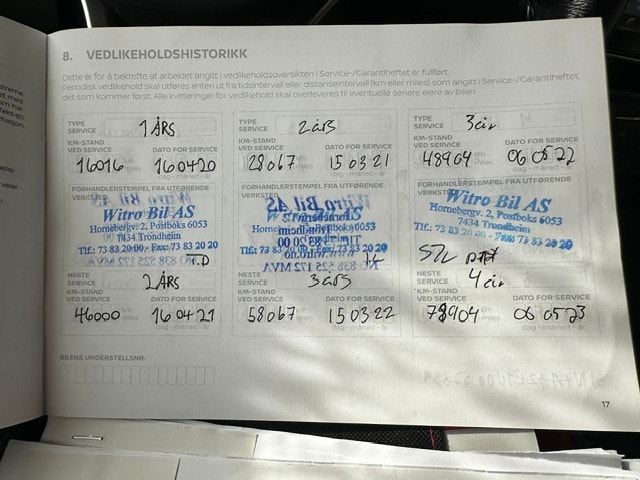 8. VEDLIKEHOLDSHISTORIKK
Dette er for å bekrefte at arbeidet angitt i vedlikeholdsoversikten i Service-/Garantiheftet er fullført.
Periodisk vedlikehold skal utføres enten ut fra tidsintervall eller distanseintervall (km eller miles) som angitt i Service-/Garantiheftet,
det som kommer først. Alle kvitteringer for vedlikehold skal overleveres til eventuelle senere eiere av bilen.
TYPE SERVICE 1 ÅRS
KM-STAND VED SERVICE DATO FOR SERVICE
16016 16 04 20
FORHANDLERSTEMPEL FRA UTFØRENDE VERKSTED
Witro Bil AS
Hornebergv. 2, Postboks 6053
7434 Trondheim
Tlf.: 73 83 20 00 - Fax: 73 83 20 20
T.D
NESTE SERVICE 2 ÅRS
KM-STAND VED SERVICE DATO FOR SERVICE
46000 16 04 21
dag - måned - år
TYPE SERVICE 2 års
KM-STAND VED SERVICE DATO FOR SERVICE
28067 15 03 21
FORHANDLERSTEMPEL FRA UTFØRENDE VERKSTED
Witro Bil AS
NESTE SERVICE 3 års
KM-STAND VED SERVICE DATO FOR SERVICE
58067 15 03 22
dag - måned - år
TYPE SERVICE 3 år
KM-STAND VED SERVICE DATO FOR SERVICE
48904 06 05 22
FORHANDLERSTEMPEL FRA UTFØRENDE VERKSTED
Witro Bil AS
Hornebergv. 2, Postboks 6053
7434 Trondheim
Tlf.: 73 83 20 00 - Fax: 73 83 20 20
NESTE SERVICE 4 år
KM-STAND VED SERVICE DATO FOR SERVICE
78904 06 05 23
miles dag - måned - år
BILENS UNDERSTELLSNR.
17